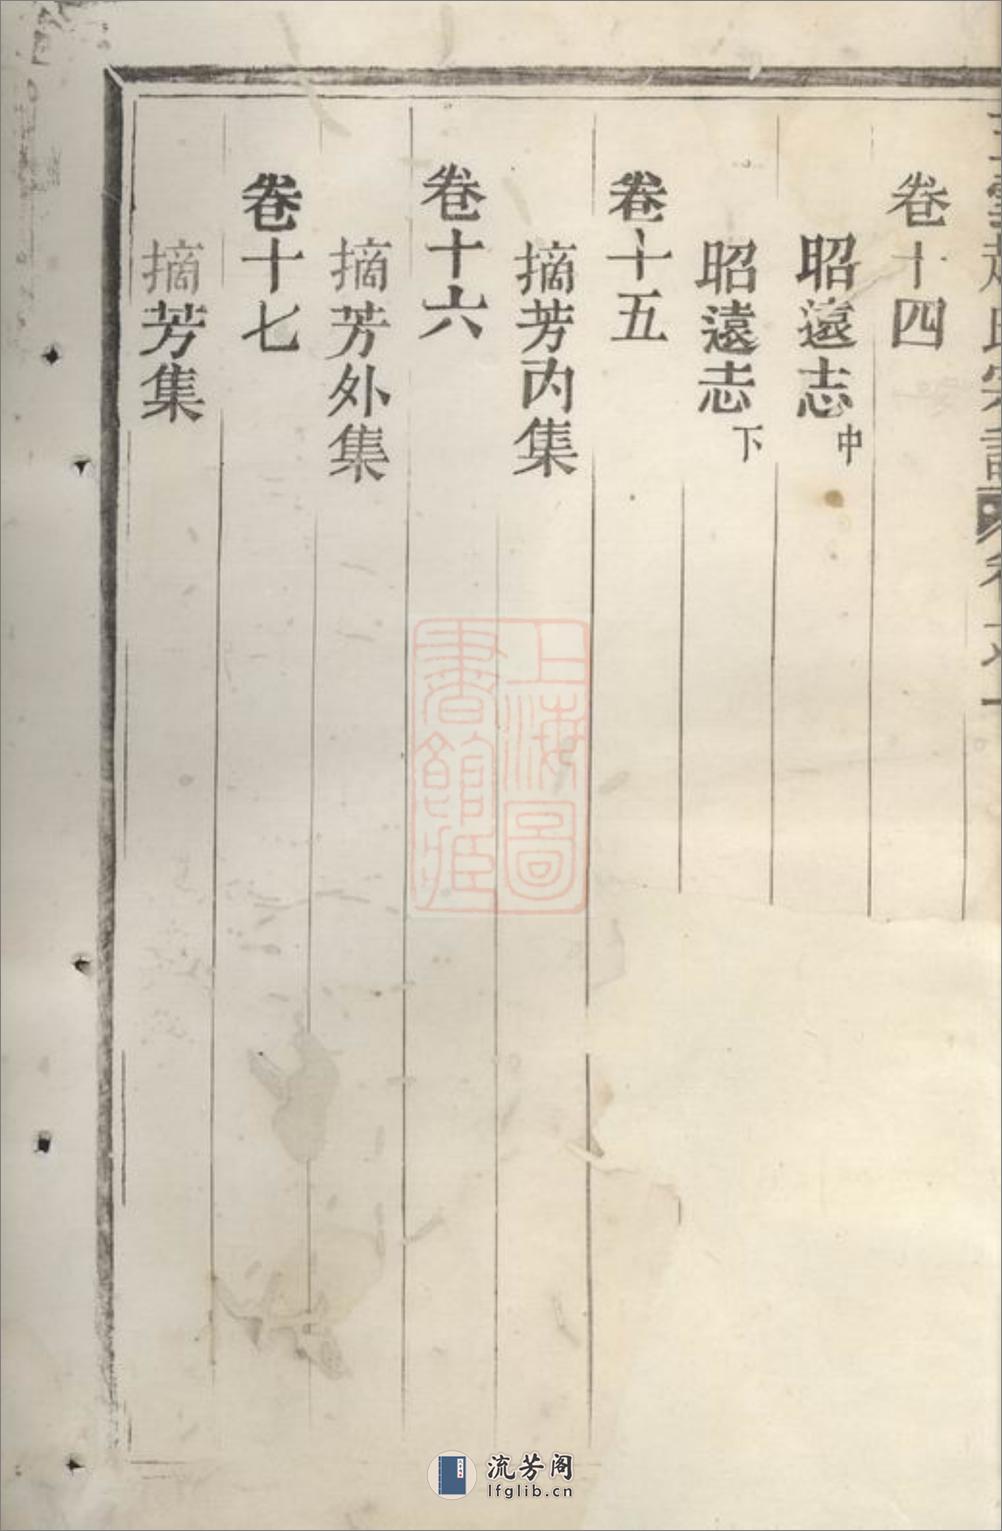 卷十四
昭遠志中
昭遠志下
卷十五
摘芳内集
卷十六
摘芳外集
卷十七
摘芳集
上海圖
書館藏
流芳阁
lfglib.cn